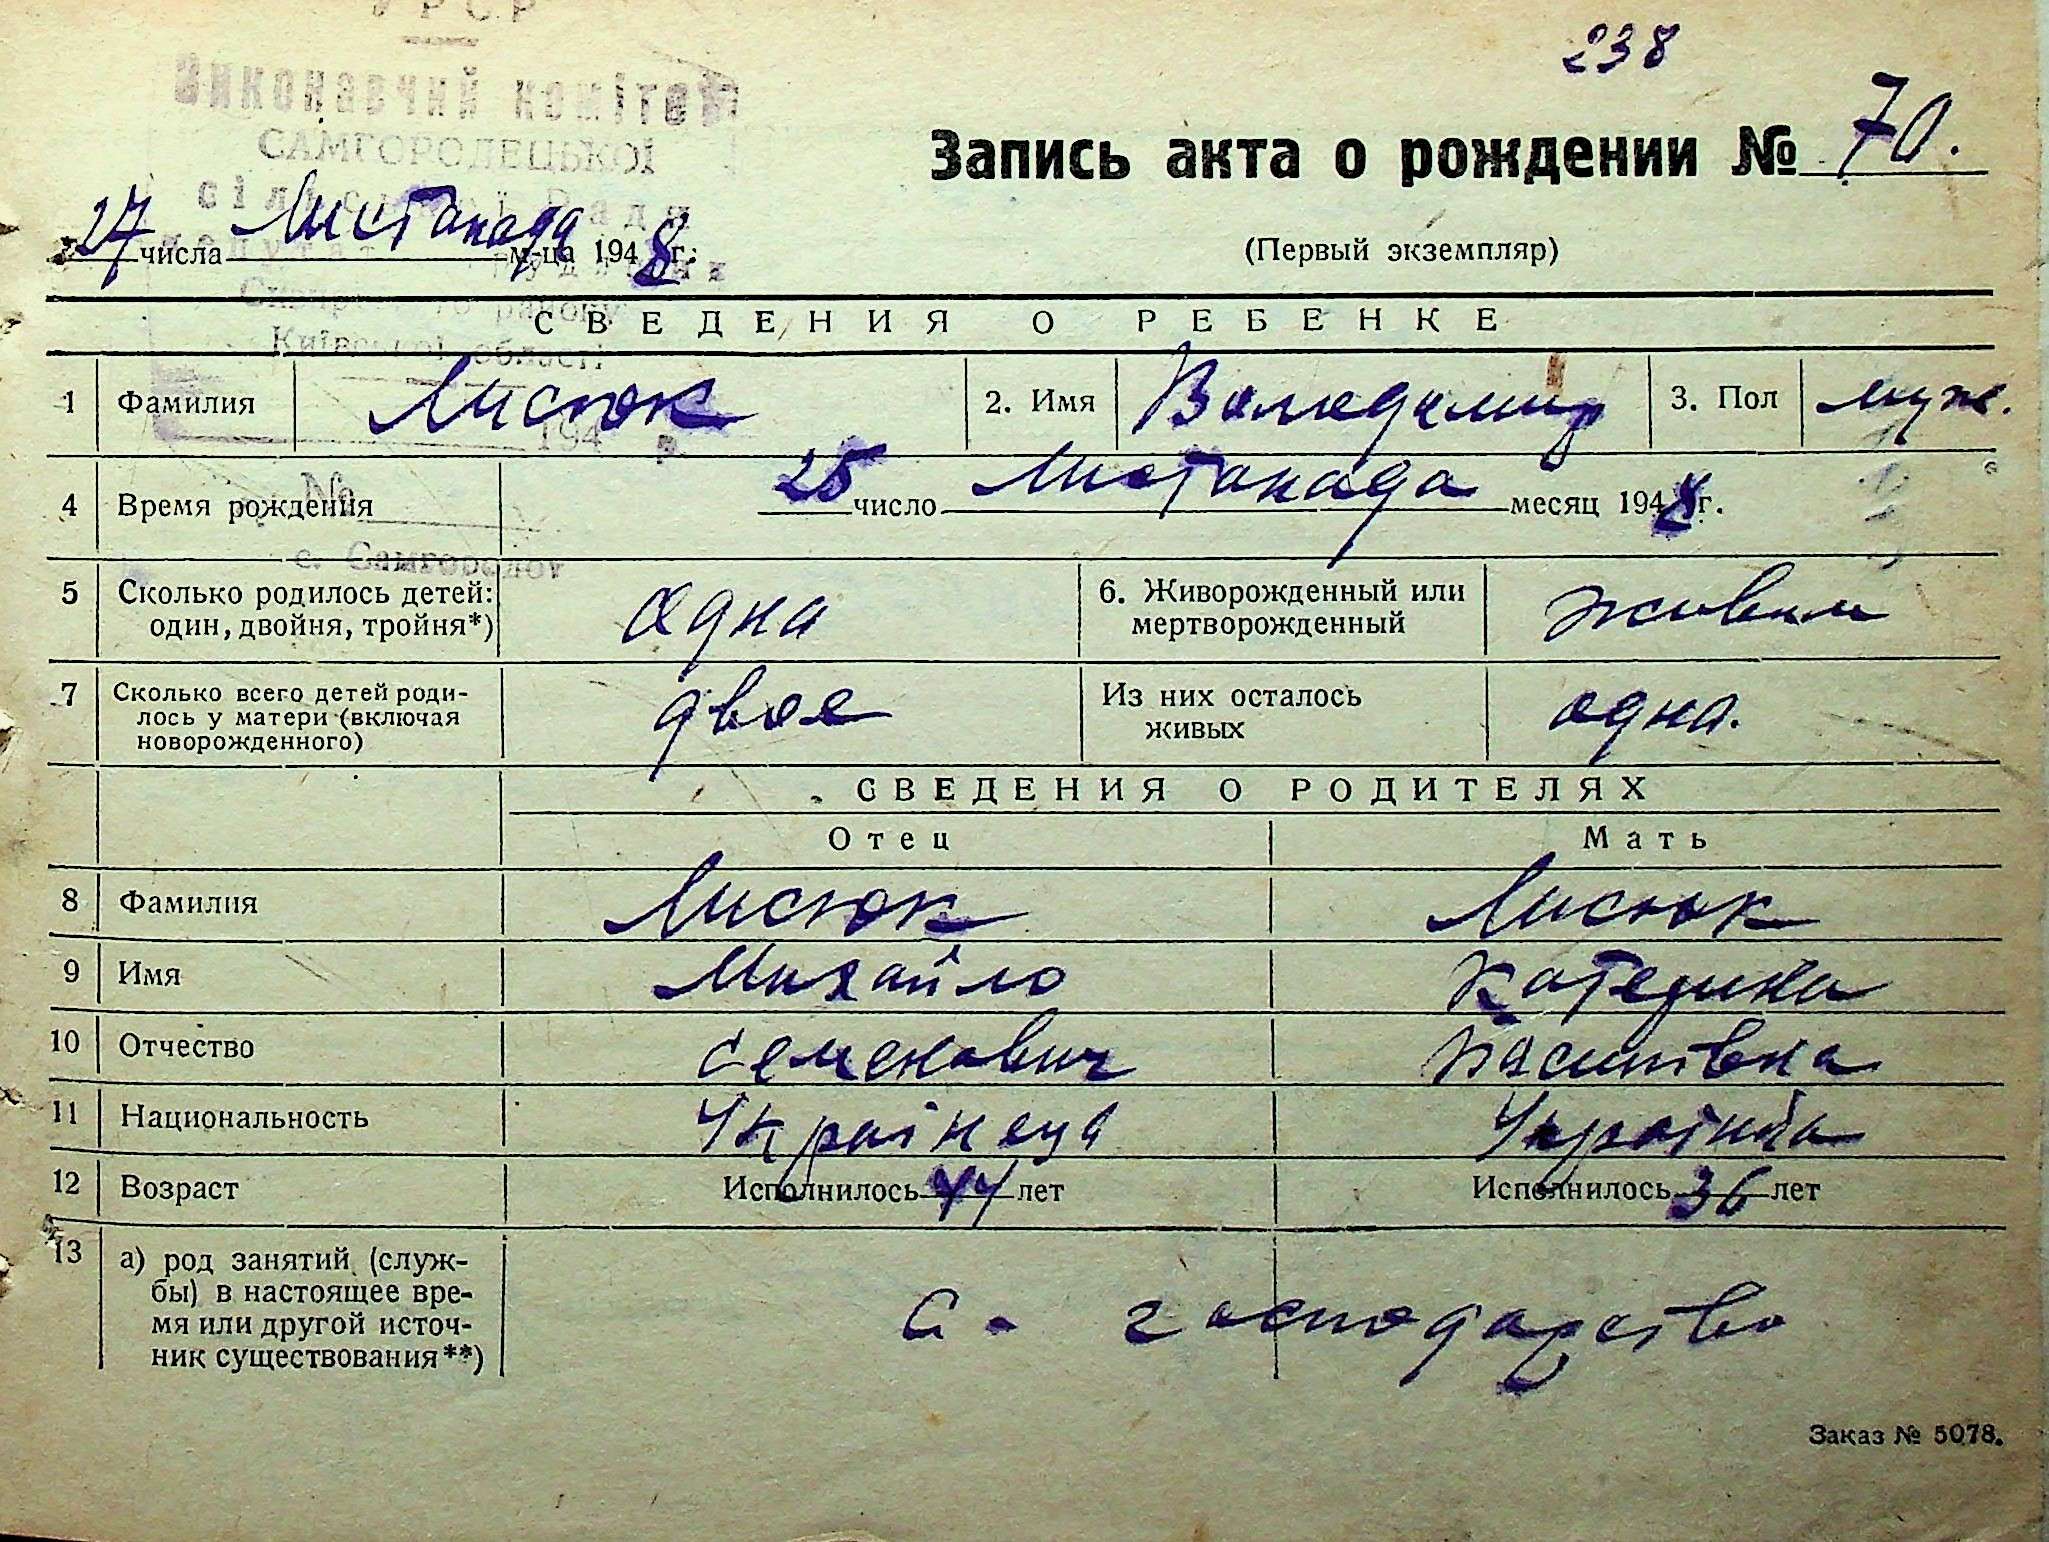 УРСР
238
Виконавчий комітет
САМГОРОДЕЦЬКОЇ
Запись акта о рождении № 70.
27 числа Листопада м-ца 1948 г.
(Первый экземпляр)
Київської області
СВЕДЕНИЯ О РЕБЕНКЕ
1 Фамилия Лисюк 2. Имя Володимир 3. Пол муж.
194 р.
4 Время рождения 25 число Листопада месяц 1948 г.
№
с. Самгородок
5 Сколько родилось детей: один, двойня, тройня*) одна 6. Живорожденный или мертворожденный живим
7 Сколько всего детей роди-
лось у матери (включая
новорожденного) двоє Из них осталось живых одна.
СВЕДЕНИЯ О РОДИТЕЛЯХ
Отец Мать
8 Фамилия Лисюк Лисюк
9 Имя Михайло Катерина
10 Отчество Семенович
11 Национальность Українець Українка
12 Возраст Исполнилось 44 лет Исполнилось 36 лет
13 а) род занятий (служ-
бы) в настоящее вре-
мя или другой источ-
ник существования**) С - господарство
Заказ № 5078.